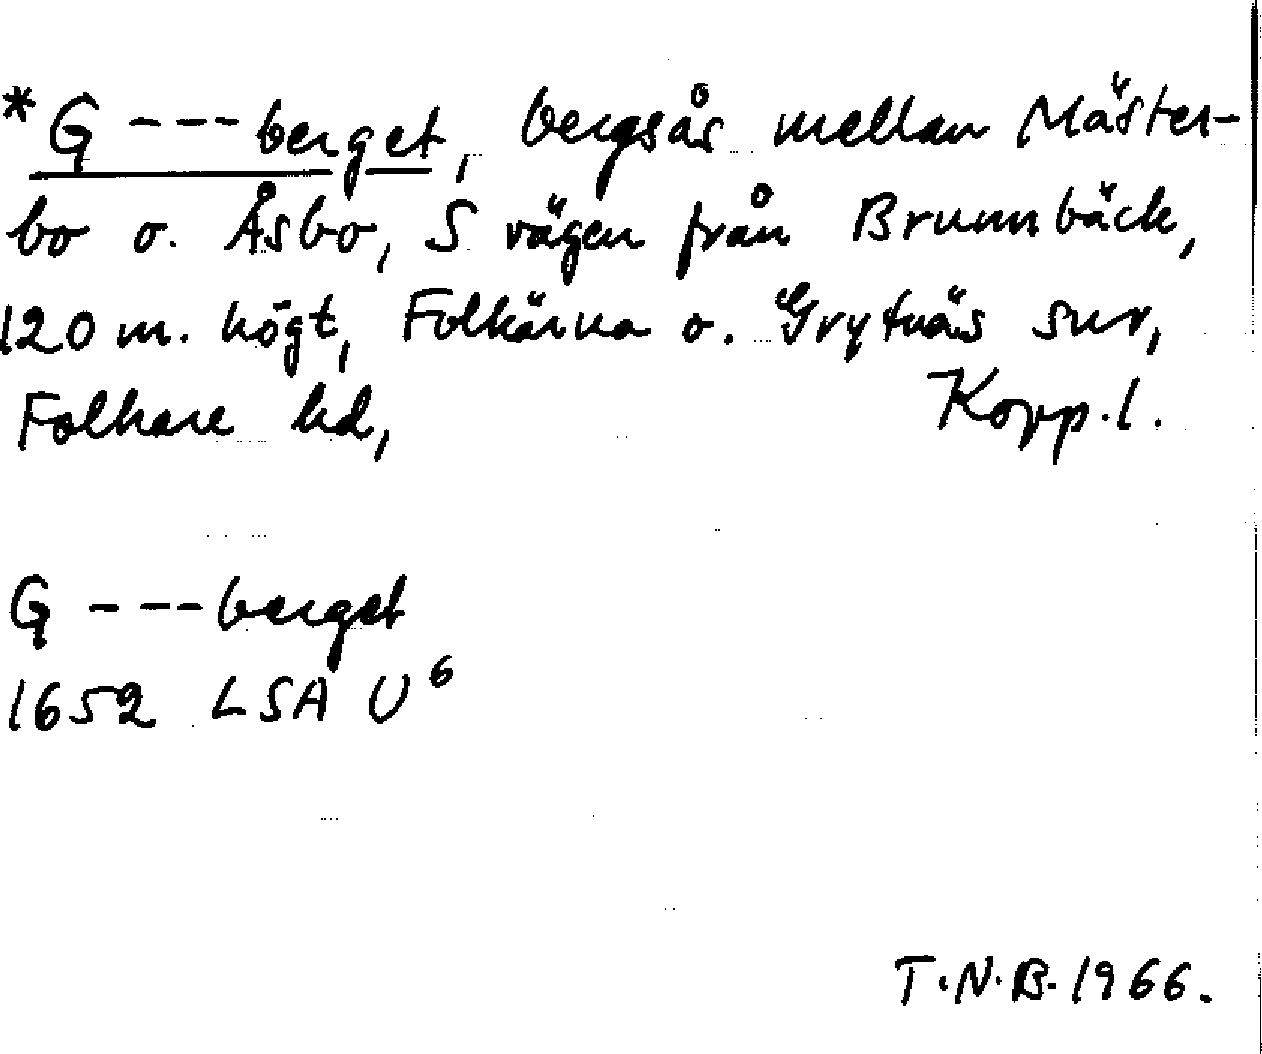 *G ---berget, bergsås mellan Mäster-
bo o. Åsbo, S vägen från Brunnbäck,
120 m. högt, Folkärna o. Grytnäs snr,
Folkare hd, Kopp. l.
G ---berget
1652 LSA U⁶
T.N.B. 1966.